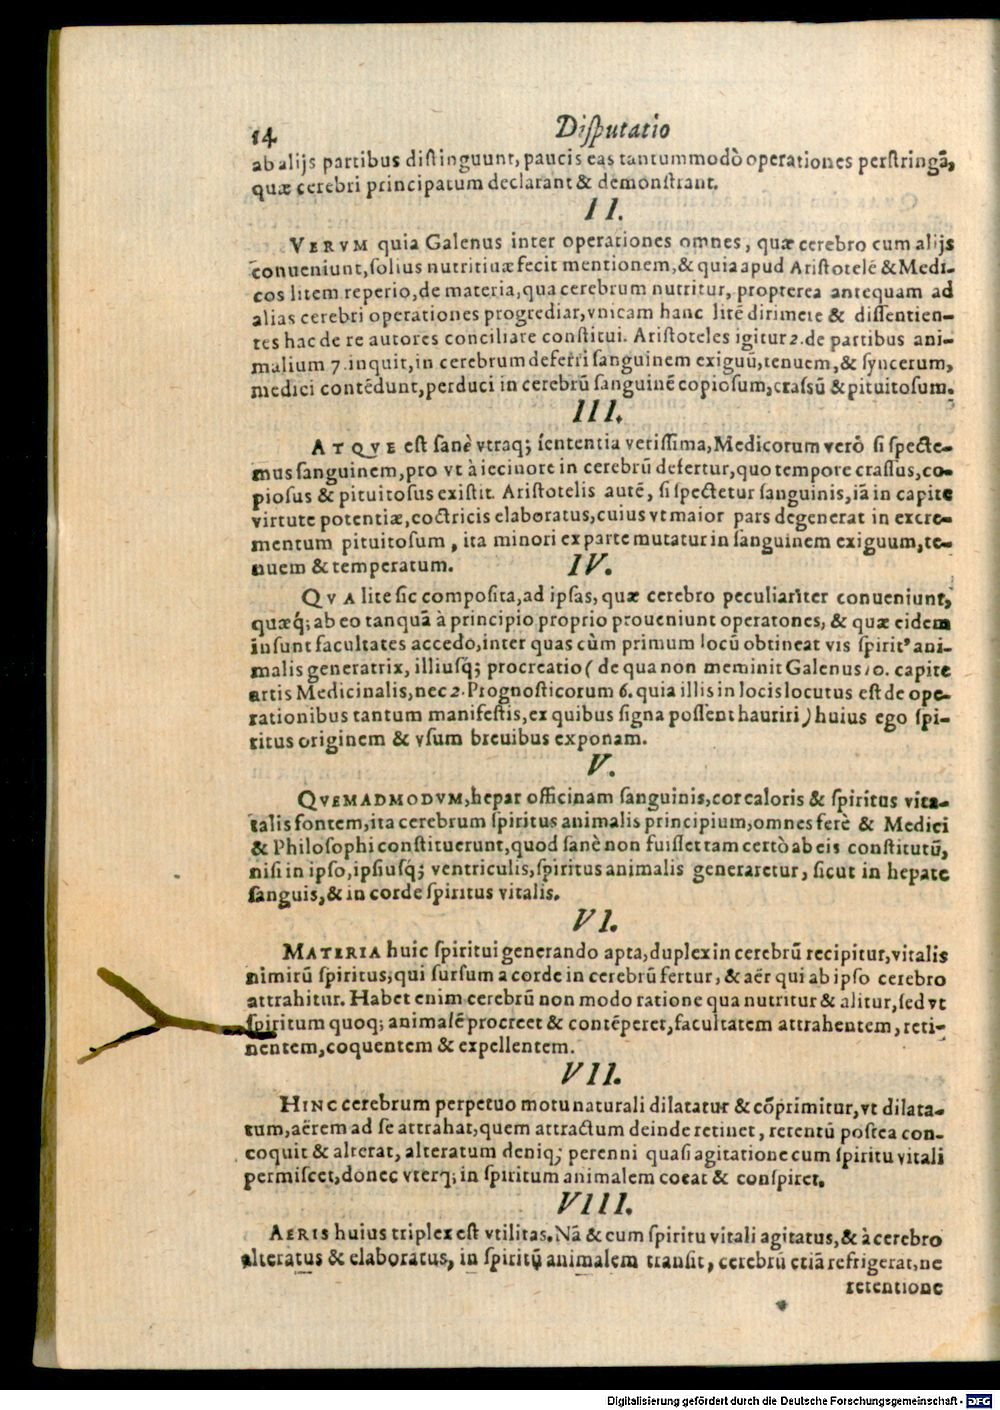 14 Disputatio
ab alijs partibus distinguunt, paucis eas tantummodò operationes perstringã,
quæ cerebri principatum declarant & demonstrant.
II.
VERVM quia Galenus inter operationes omnes, quæ cerebro cum alijs
conueniunt, solius nutritiuæ fecit mentionem, & quia apud Aristotelē & Medi-
cos litem reperio, de materia, qua cerebrum nutritur, propterea antequam ad
alias cerebri operationes progrediar, vnicam hanc litē dirimere & dissentien-
tes hac de re autores conciliare constitui. Aristoteles igitur 2. de partibus ani-
malium 7. inquit, in cerebrum deferri sanguinem exiguū, tenuem, & syncerum,
medici contēdunt, perduci in cerebrū sanguinē copiosum, crassū & pituitosum.
III.
ATQVE est sanè vtraq; sententia verissima, Medicorum verò si specte-
mus sanguinem, pro vt à iecinore in cerebrū defertur, quo tempore crassus, co-
piosus & pituitosus existit. Aristotelis autē, si spectetur sanguinis, iã in capite
virtute potentiæ, coctricis elaboratus, cuius vt maior pars degenerat in excre-
mentum pituitosum, ita minori ex parte mutatur in sanguinem exiguum, te-
nuem & temperatum.
IV.
QVA lite sic composita, ad ipsas, quæ cerebro peculiariter conueniunt,
quæq́; ab eo tanquã à principio proprio proueniunt operatones, & quæ eidem
insunt facultates accedo, inter quas cùm primum locū obtineat vis spiritꝰ ani-
malis generatrix, illiusq́; procreatio (de qua non meminit Galenus 10. capite
artis Medicinalis, nec 2. Prognosticorum 6. quia illis in locis locutus est de ope-
rationibus tantum manifestis, ex quibus signa possent hauriri) huius ego spi-
ritus originem & vsum breuibus exponam.
V.
QVEMADMODVM, hepar officinam sanguinis, cor caloris & spiritus vita-
talis fontem, ita cerebrum spiritus animalis principium, omnes ferè & Medici
& Philosophi constituerunt, quod sanè non fuisset tam certò ab eis constitutū,
nisi in ipso, ipsiusq́; ventriculis, spiritus animalis generaretur, sicut in hepate
sanguis, & in corde spiritus vitalis.
VI.
MATERIA huic spiritui generando apta, duplex in cerebrū recipitur, vitalis
nimirū spiritus, qui sursum a corde in cerebrū fertur, & aër qui ab ipso cerebro
attrahitur. Habet enim cerebrū non modo ratione qua nutritur & alitur, sed vt
spiritum quoq; animalē procreet & contēperet, facultatem attrahentem, reti-
nentem, coquentem & expellentem.
VII.
HINC cerebrum perpetuo motu naturali dilatatur & cōprimitur, vt dilata-
tum, aërem ad se attrahat, quem attractum deinde retinet, retentū postea con-
coquit & alterat, alteratum deniq; perenni quasi agitatione cum spiritu vitali
permiscet, donec vterq; in spiritum animalem coeat & conspiret.
VIII.
AERIS huius triplex est vtilitas. Nã & cum spiritu vitali agitatus, & à cerebro
alteratus & elaboratus, in spiritū animalem transit, cerebrū etiã refrigerat, ne
retentione
Digitalisierung gefördert durch die Deutsche Forschungsgemeinschaft - DFG